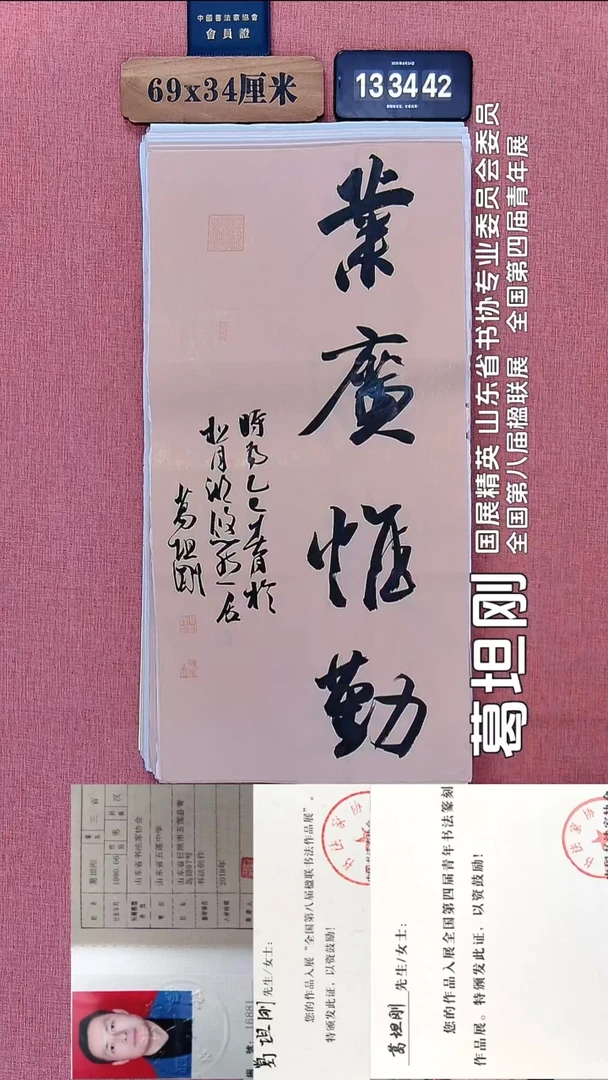 中國書法家協會
會員證
69x34厘米
13 34 42
業廣惟勤
時為乙巳春於
松月湖悠然居
葛坦剛
国展精英 山东省书协专业委员会委员
全国第八届楹联展 全国第四届青年展
葛坦刚
葛坦刚
1980.06
山东省书法家协会
山东省五莲中学
书法创作
2018年
16881
葛坦刚 先生/女士：
您的作品入展“全国第八届楹联书法作品展”。
特颁发此证，以资鼓励！
葛坦刚 先生/女士：
您的作品入展全国第四届青年书法篆刻
作品展。特颁发此证，以资鼓励！